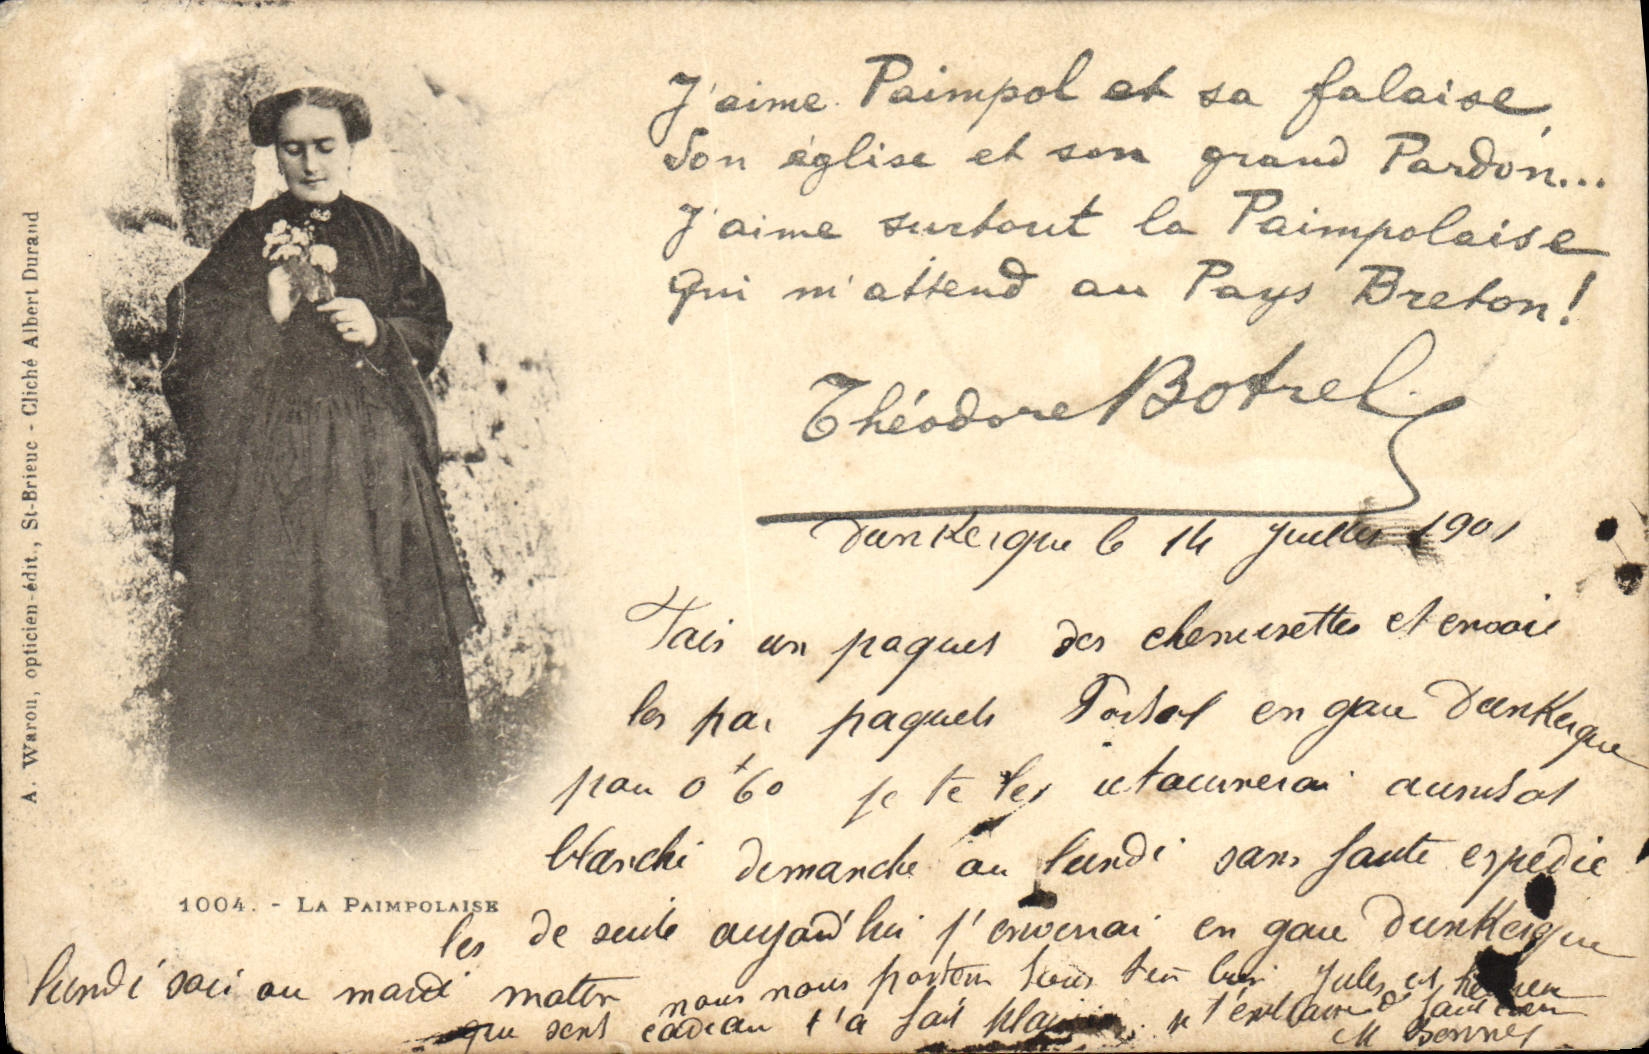 J'aime Paimpol et sa falaise,
Son église et son grand Pardon...
J'aime surtout la Paimpolaise
Qui m'attend au Pays Breton!
Théodore Botrel
Dunkerque le 14 Juillet 1901
Fais un paques des chemisettes et envoie
les par paquets Postal en gare Dunkerque
pour 0f60 je te les retournerai aussitot
blanchi dimanche ou lundi sans faute expedie
les de suite aujourd'hui j'enverrai en gare Dunkerque
lundi soir ou mardi matin nous nous portons tous bien Jules et
que sent cadeau t'a fait plaisir
A. Waron, opticien-édit., St-Brieuc - Cliché Albert Durand
1004. - LA PAIMPOLAISE